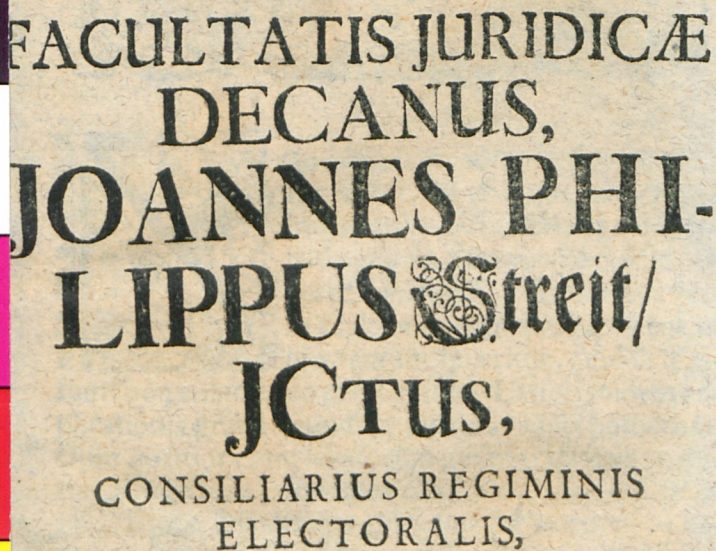 FACULTATIS JURIDICÆ
DECANUS,
JOANNES PHI-
LIPPUS Streit/
JCTUS,
CONSILIARIUS REGIMINIS
ELECTORALIS,